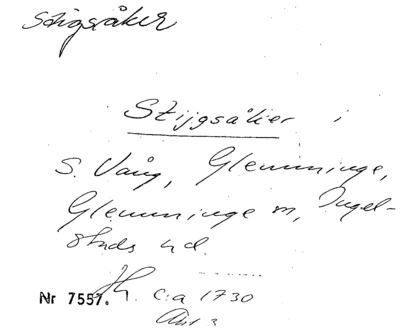 Stigsåker
Stijgsåker i
S. Vång, Glemminge,
Glemminge sn, Ingel-
stads hd.
Nr 7557. c:a 1730